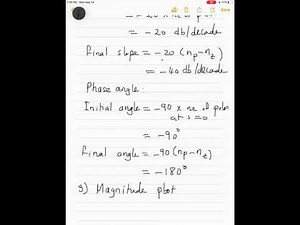 = -20 db/decade
Final slope = -20 (np-nz)
= -40 db/decade
Phase angle:
Initial angle = -90 x no of poles
at s=0
= -90°
Final angle = -90(np-nz)
= -180°
9) Magnitude plot